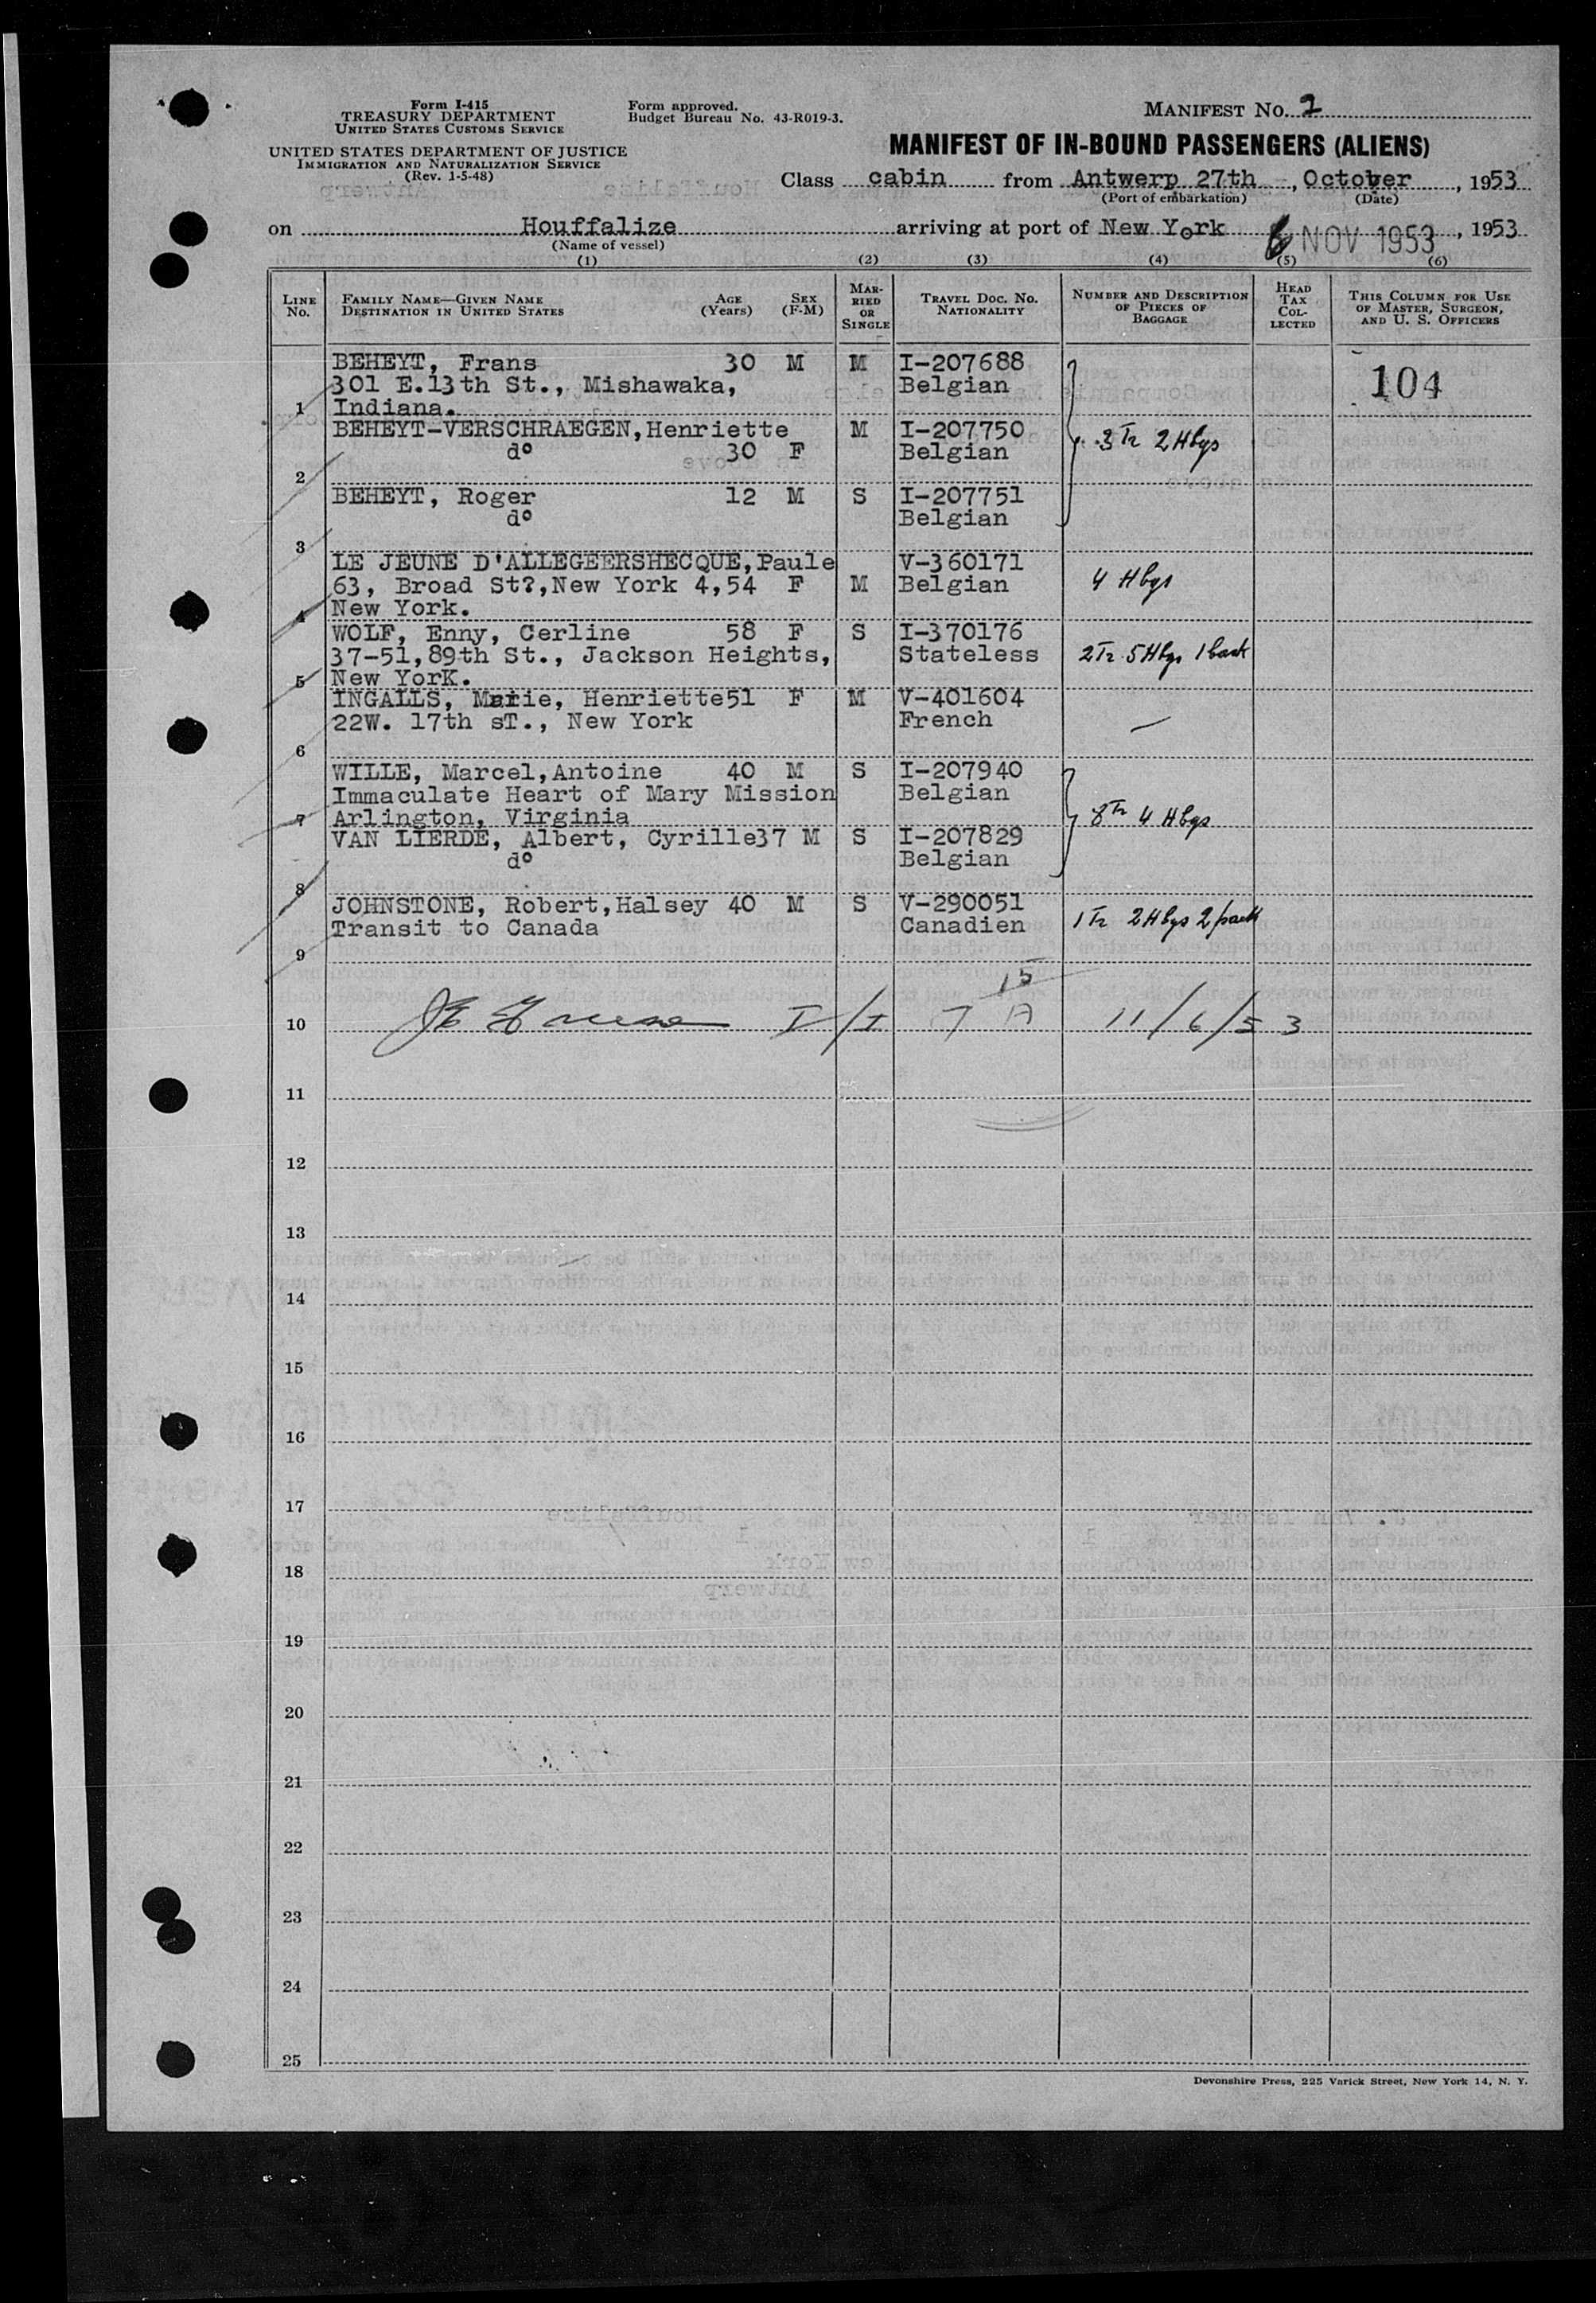 Form I-415
TREASURY DEPARTMENT
UNITED STATES CUSTOMS SERVICE
UNITED STATES DEPARTMENT OF JUSTICE
IMMIGRATION AND NATURALIZATION SERVICE
(Rev. 1-5-48)
Form approved.
Budget Bureau No. 43-R019-3.
MANIFEST NO. 2
MANIFEST OF IN-BOUND PASSENGERS (ALIENS)
Class cabin from Antwerp 27th, October, 1953
(Port of embarkation) (Date)
on Houffalize arriving at port of New York 6 NOV 1953, 1953
(Name of vessel)
(1) (2) (3) (4) (5) (6)
LINE No. FAMILY NAME—GIVEN NAME DESTINATION IN UNITED STATES AGE (Years) SEX (F-M) MARRIED OR SINGLE TRAVEL DOC. NO. NATIONALITY NUMBER AND DESCRIPTION OF PIECES OF BAGGAGE HEAD TAX COLLECTED THIS COLUMN FOR USE OF MASTER, SURGEON, AND U. S. OFFICERS
BEHEYT, Frans 30 M M I-207688
301 E.13th St., Mishawaka, Belgian 104
1 Indiana.
BEHEYT-VERSCHRAEGEN,Henriette M I-207750 3 Tr 2 Hbgs
do 30 F Belgian
2
BEHEYT, Roger 12 M S I-207751
do Belgian
3
LE JEUNE D'ALLEGEERSHECQUE,Paule V-360171
63, Broad St?,New York 4,54 F M Belgian 4 Hbgs
4 New York.
WOLF, Enny, Cerline 58 F S I-370176
37-51,89th St., Jackson Heights, Stateless 2 Tr 5 Hbgs 1
5 New YorK.
INGALLS, Marie, Henriette51 F M V-401604
22W. 17th sT., New York French —
6
WILLE, Marcel,Antoine 40 M S I-207940
Immaculate Heart of Mary Mission Belgian
7 Arlington, Virginia 8 Tr 4 Hbgs
VAN LIERDE, Albert, Cyrille37 M S I-207829
do Belgian
8
JOHNSTONE, Robert,Halsey 40 M S V-290051
Transit to Canada Canadien 1 Tr 2 Hbgs 2 pack
9
15
10 I/I 7 A 11/6/53
11
12
13
14
15
16
17
18
19
20
21
22
23
24
25
Devonshire Press, 225 Varick Street, New York 14, N. Y.